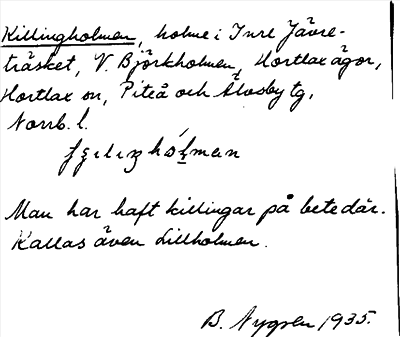 Killingholmen, holme i Inre Jävre-
träsket, V. Björkholmen, Hortlax ägor,
Hortlax sn, Piteå och Älvsby tg,
Norrb. l.
Man har haft killingar på bete där.
Kallas även Lillholmen.
B. Nygren 1935.